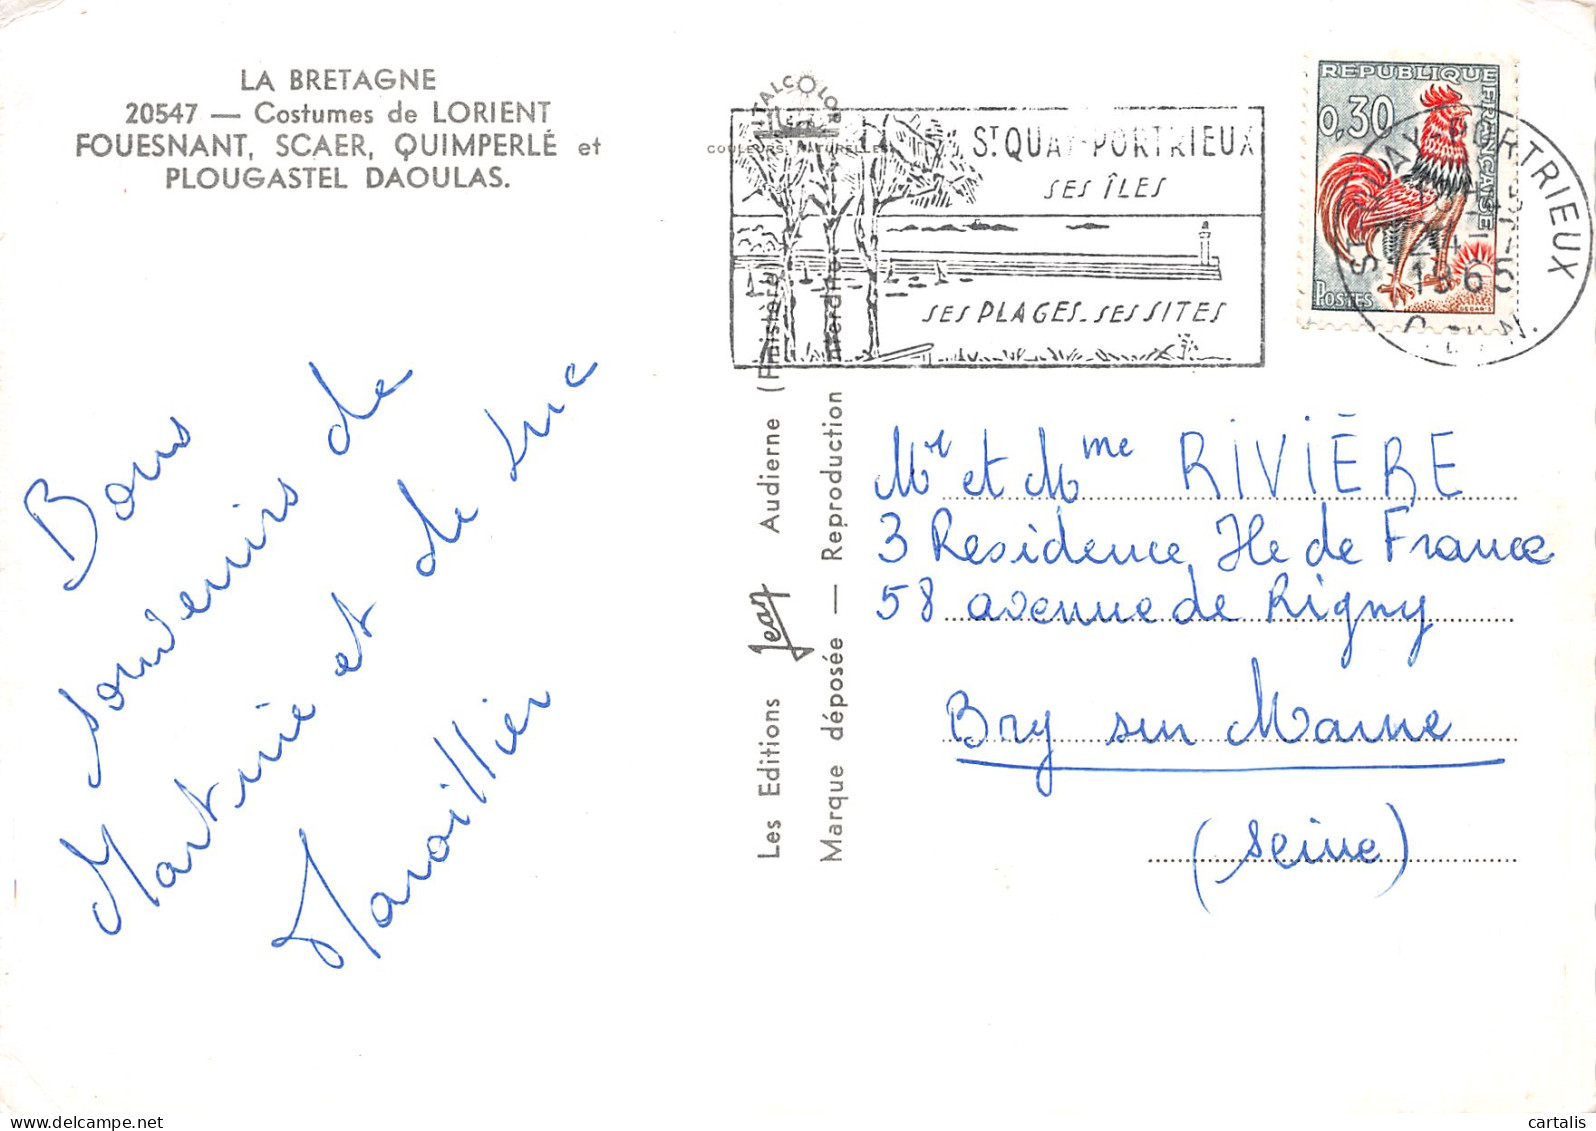 LA BRETAGNE
20547 — Costumes de LORIENT
FOUESNANT, SCAER, QUIMPERLÉ et
PLOUGASTEL DAOULAS.
ITALCOLOR
COULEURS NATURELLES
ST QUAY-PORTRIEUX
SES ÎLES
SES PLAGES - SES SITES
REPUBLIQUE FRANÇAISE
0,30
POSTES
DECARIS
ST QUAY-PORTRIEUX
1965
Bons
souvenirs de
Martine et de Luc
Maroillier
Les Editions Jean Audierne (Finistère)
Marque déposée — Reproduction interdite
Mr et Mme RIVIÈRE
3 Residence Ile de France
58 avenue de Rigny
Bry sur Marne
(Seine)
cartalis